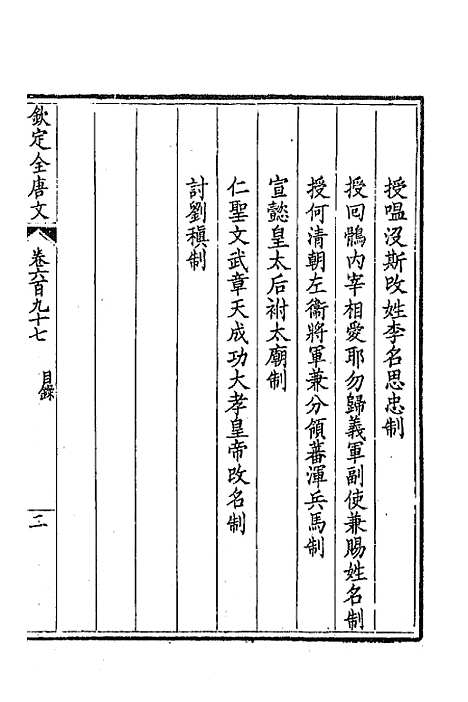 授嗢沒斯改姓李名思忠制
授回鶻內宰相愛耶勿歸義軍副使兼賜姓名制
授何清朝左衞將軍兼分領蕃渾兵馬制
宣懿皇太后祔太廟制
仁聖文武章天成功大孝皇帝改名制
討劉稹制
欽定全唐文
卷六百九十七
目錄
二